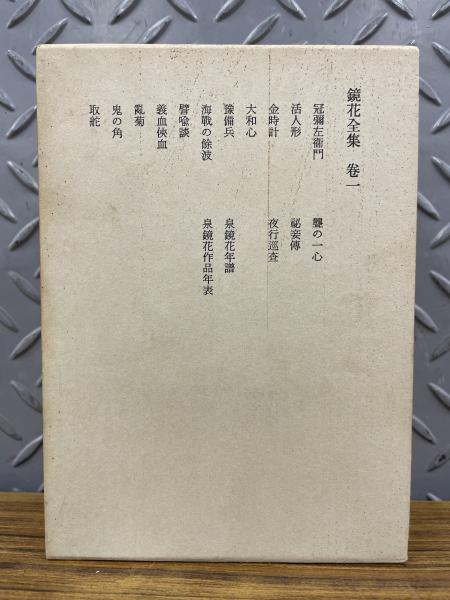 鏡花全集 卷一
冠彌左衞門
活人形
金時計
大和心
豫備兵
海戰の餘波
譬喩談
義血俠血
亂菊
鬼の角
取舵
聾の一心
祕妾傳
夜行巡査
泉鏡花年譜
泉鏡花作品年表